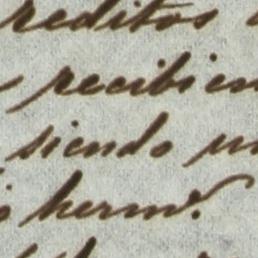 reditos
recibien
siendo un
herm.º